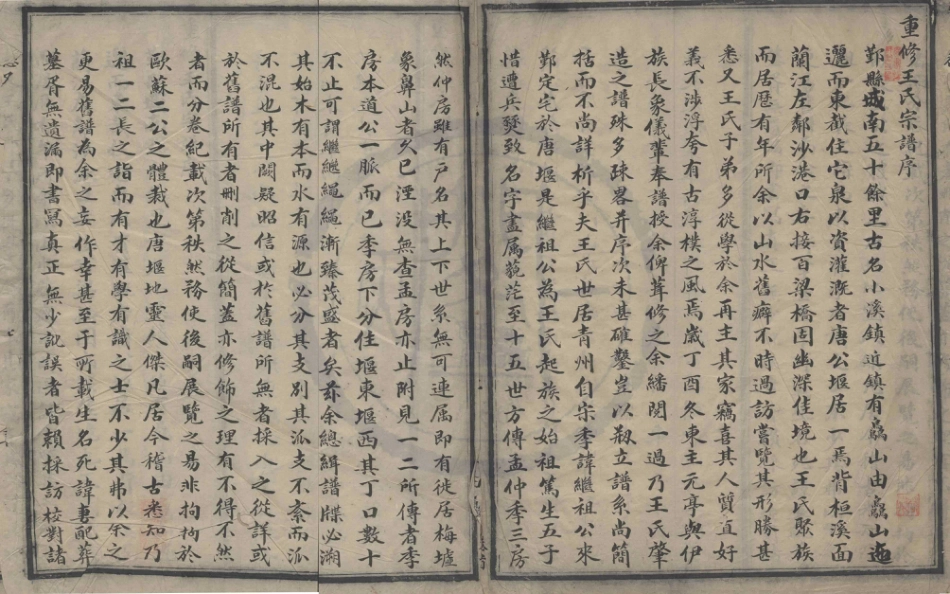 重修王氏宗譜序
鄞縣城南五十餘里古名小溪鎮近鎮有鱻山由鱻山迤
邐而東截住它泉以資灌溉者唐公堰居一焉背桓溪面
蘭江左鄰沙港口右接百梁橋固幽深佳境也王氏聚族
而居歷有年所余以山水舊癖不時過訪嘗覽其形勝甚
悉又王氏子弟多從學於余再主其家竊喜其人質直好
義不涉浮夸有古淳樸之風焉歲丁酉冬東主元亭與伊
族長象儀輩奉譜授余俾葺修之余繙閱一過乃王氏肇
造之譜殊多疎畧并序次未甚確鑿豈以剏立譜系尚簡
括而不尚詳析乎夫王氏世居青州自宋季諱繼祖公來
鄞定宅於唐堰是繼祖公為王氏起族之始祖篤生五子
惜遭兵燹致名字盡属茫茫至十五世方傳孟仲季三房
然仲房雖有戸名其上下世系無可連属即有徙居梅墟
象鼻山者久已湮没無查孟房亦止附見一二所傳者季
房本道公一脈而已季房下分住堰東堰西其丁口數十
不止可謂繼繼繩繩漸臻茂盛者矣茲余總緝譜牒必溯
其始木有本而水有源也必分其支別其派支不紊而派
不混也其中闕疑昭信或於舊譜所無者採入之從詳或
於舊譜所有者刪削之從簡蓋亦修飾之理有不得不然
者而分卷紀載次第秩然務使後嗣展覽之易非拘拘於
歐蘇二公之體裁也唐堰地靈人傑凡居今稽古老知乃
祖一二長之詣而有才有學有識之士不少其弗以余之
更易舊譜為余之妄作幸甚至于所載生名死諱妻配葬
墓胥無遺漏即書寫真正無少訛誤者皆賴採訪校對諸